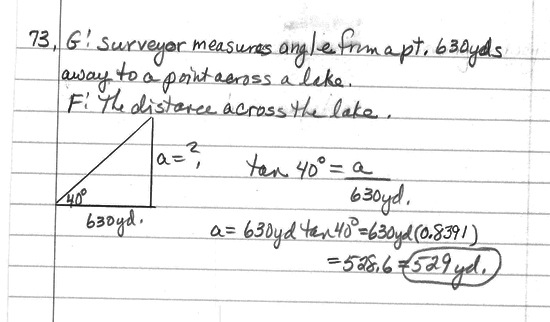 73, G: Surveyor measures angle from a pt. 630yds
away to a point across a lake.
F: The distance across the lake.
a=?
tan 40° = a
630yd.
40°
630yd.
a= 630yd tan40°=630yd(0.8391)
=528.6 = 529 yd.